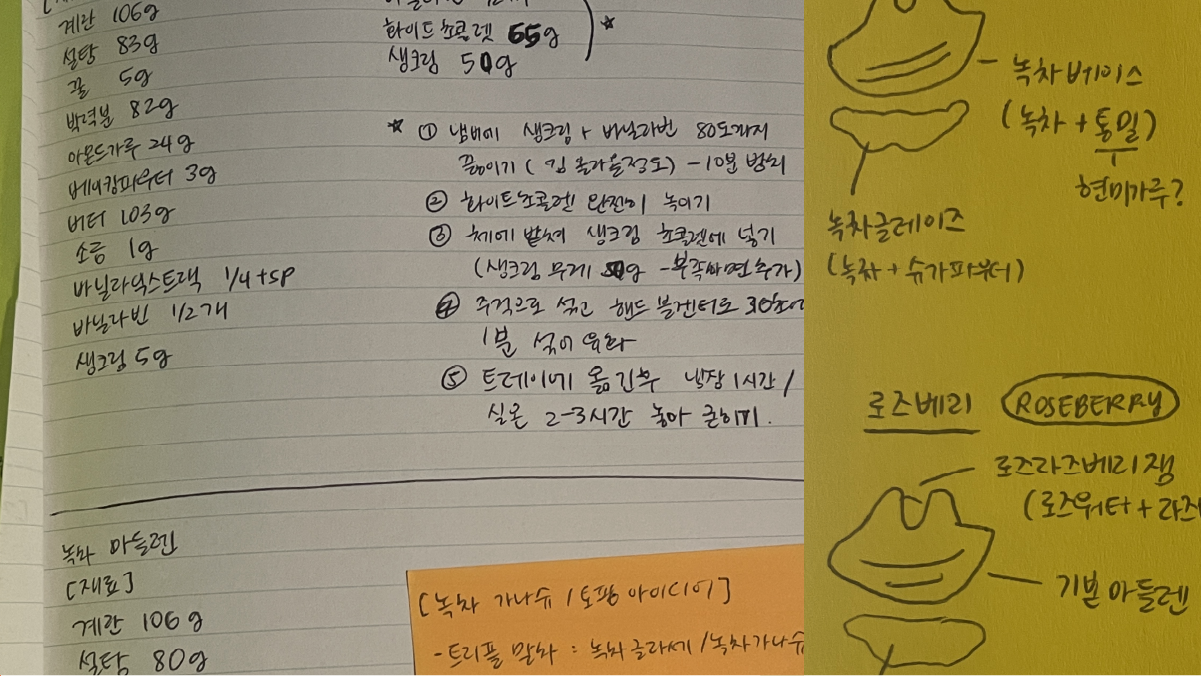 계란 106g
설탕 83g
꿀 5g
박력분 82g
아몬드가루 24g
베이킹파우더 3g
버터 103g
소금 1g
바닐라익스트랙 1/4 tsp
바닐라빈 1/2개
생크림 5g
화이트초콜렛 65g
생크림 50g
* ① 냄비에 생크림 + 바닐라빈 80도까지
끓이기 (김 올라올정도) - 10분 방치
② 화이트초콜렛 완전히 녹이기
③ 체에 받쳐 생크림 초콜렛에 넣기
(생크림 무게 50g - 부족하면 추가)
④ 주걱으로 섞고 핸드 블렌더로 30초
1분 섞어 유화
⑤ 트레이에 옮긴후 냉장 1시간 /
실온 2-3시간 놓아 굳히기.
녹차 마들렌
[재료]
계란 106g
설탕 80g
[녹차 가나슈 / 토핑 아이디어]
- 트리플 말차 : 녹차글라세 / 녹차가나슈
녹차베이스
(녹차 + 통밀)
현미가루?
녹차글레이즈
(녹차 + 슈가파우더)
로즈베리 ROSEBERRY
로즈라즈베리잼
(로즈워터 + 라즈
기본 마들렌